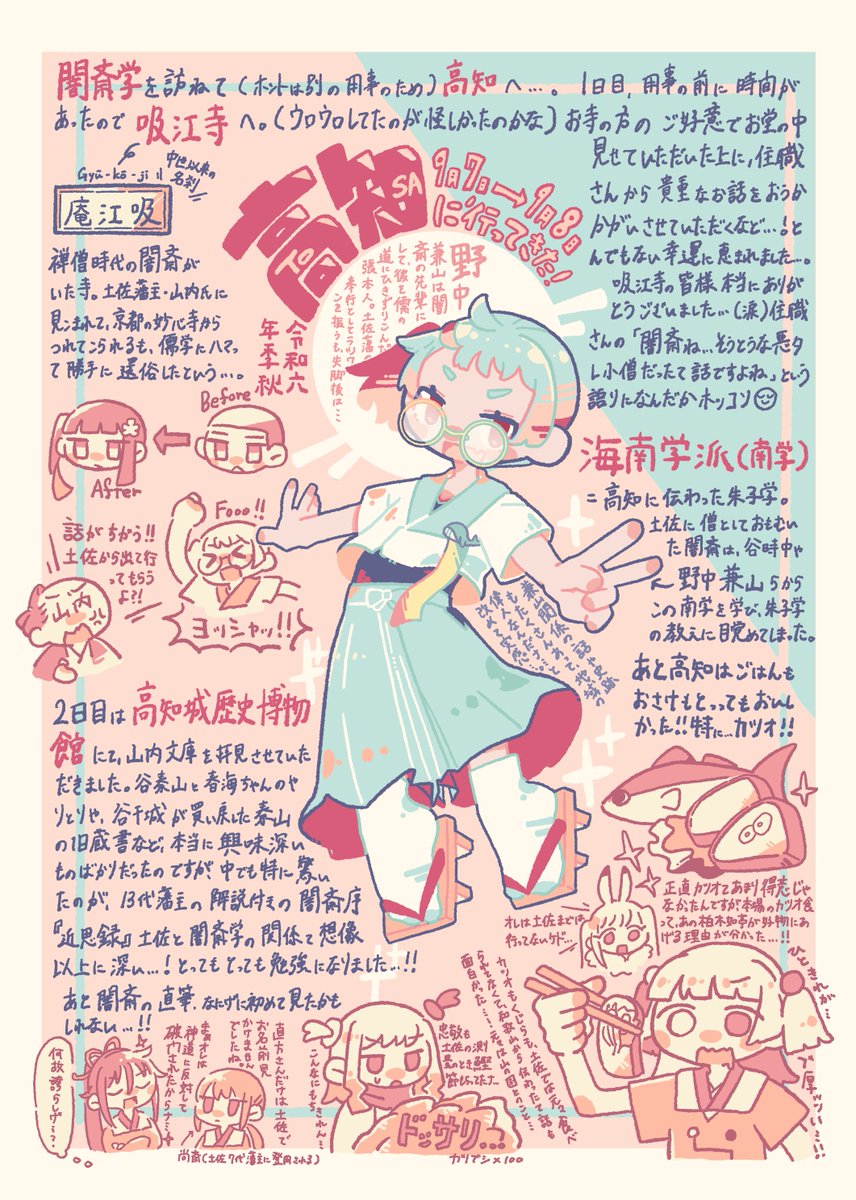 闇斎学を訪ねて(ホントは別の用事のため)高知へ…。1日目、用事の前に時間が
あったので吸江寺へ。(ウロウロしてたのが怪しかったのかな)お寺の方のご好意でお堂の中
見せていただいた上に、住職
さんから貴重なお話をおうか
かがいさせていただくなど…!と
んでもない幸運に恵まれました…。
吸江寺の皆様本当にありが
とうございました…(涙)住職
さんの「闇斎ね…そうとうな悪タ
レ小僧だったて話ですよね」という
語りになんだかホッコリ
Gyū-kō-ji!!
中世以来の
名刹
庵江吸
禅僧時代の闇斎が
いた寺。土佐藩主・山内氏に
見こまれて、京都の妙心寺から
つれてこられるも、儒学にハマっ
て勝手に還俗したという…。
高知
TO
SA
9月7日→9月8日
に行ってきた!
令和六
年季秋
野中
兼山は闇
斎の先輩に
して、彼を儒の
道にひきずりこんだ
張本人。土佐藩の
奉行としてラツワ
ンを振うも、失脚後は…
Before
After
Fooo!!
ヨッシャッ!!
話がちがう!!
土佐から出て行
ってもらう
よ?!
山内
海南学派(南学)
=高知に伝わった朱子学。
土佐に僧としておもむい
た闇斎は、谷時中や
野中兼山らから
この南学を学び、朱子学
の教えに目覚めてしまった。
兼山関係の話や史跡
もたくさんあって、地域の
偉人なんだなぁ…と
改めて実感…
あと高知はごはんも
おさけもとってもおいし
かった!!特に…カツオ!!
2日目は高知城歴史博物
館にて、山内文庫を拝見させていた
だきました。谷秦山と春海ちゃんのや
りとりや、谷干城が買い戻した秦山
の旧蔵書など、本当に興味深い
ものばかりだったのですが、中でも特に驚い
たのが、13代藩主の解説付きの闇斎序
『近思録』土佐と闇斎学の関係て想像
以上に深い…!とってもとっても勉強になりました…!!
あと闇斎の直筆、なにげに初めて見たかも
しれない…!!
正直カツオてあまり得意じゃ
なかったんですが本場のカツオ食
って、あの柏木如亭が好物にあ
げる理由が分かった…!!
オレは土佐までは
行ってないケド…
ひときれが…
ブ厚ッッい…!!
カツオもくじらも、土佐では元々食べ
られてなくて、和歌山から伝わったて話も
面白かった…!元々は山の国とのこと…
忠敬も
土佐の測
量のとき鰹
節もらってたナー
こんなにもちきれん…
ドッサリ…
カツブシ×100
直方さんだけは土佐で
お名前見
かけません
でしたね
まぁオレは
神道に反対して
破門されたからナ…
尚斎(土佐7代藩主に登用される)
何故誇らしげ…?